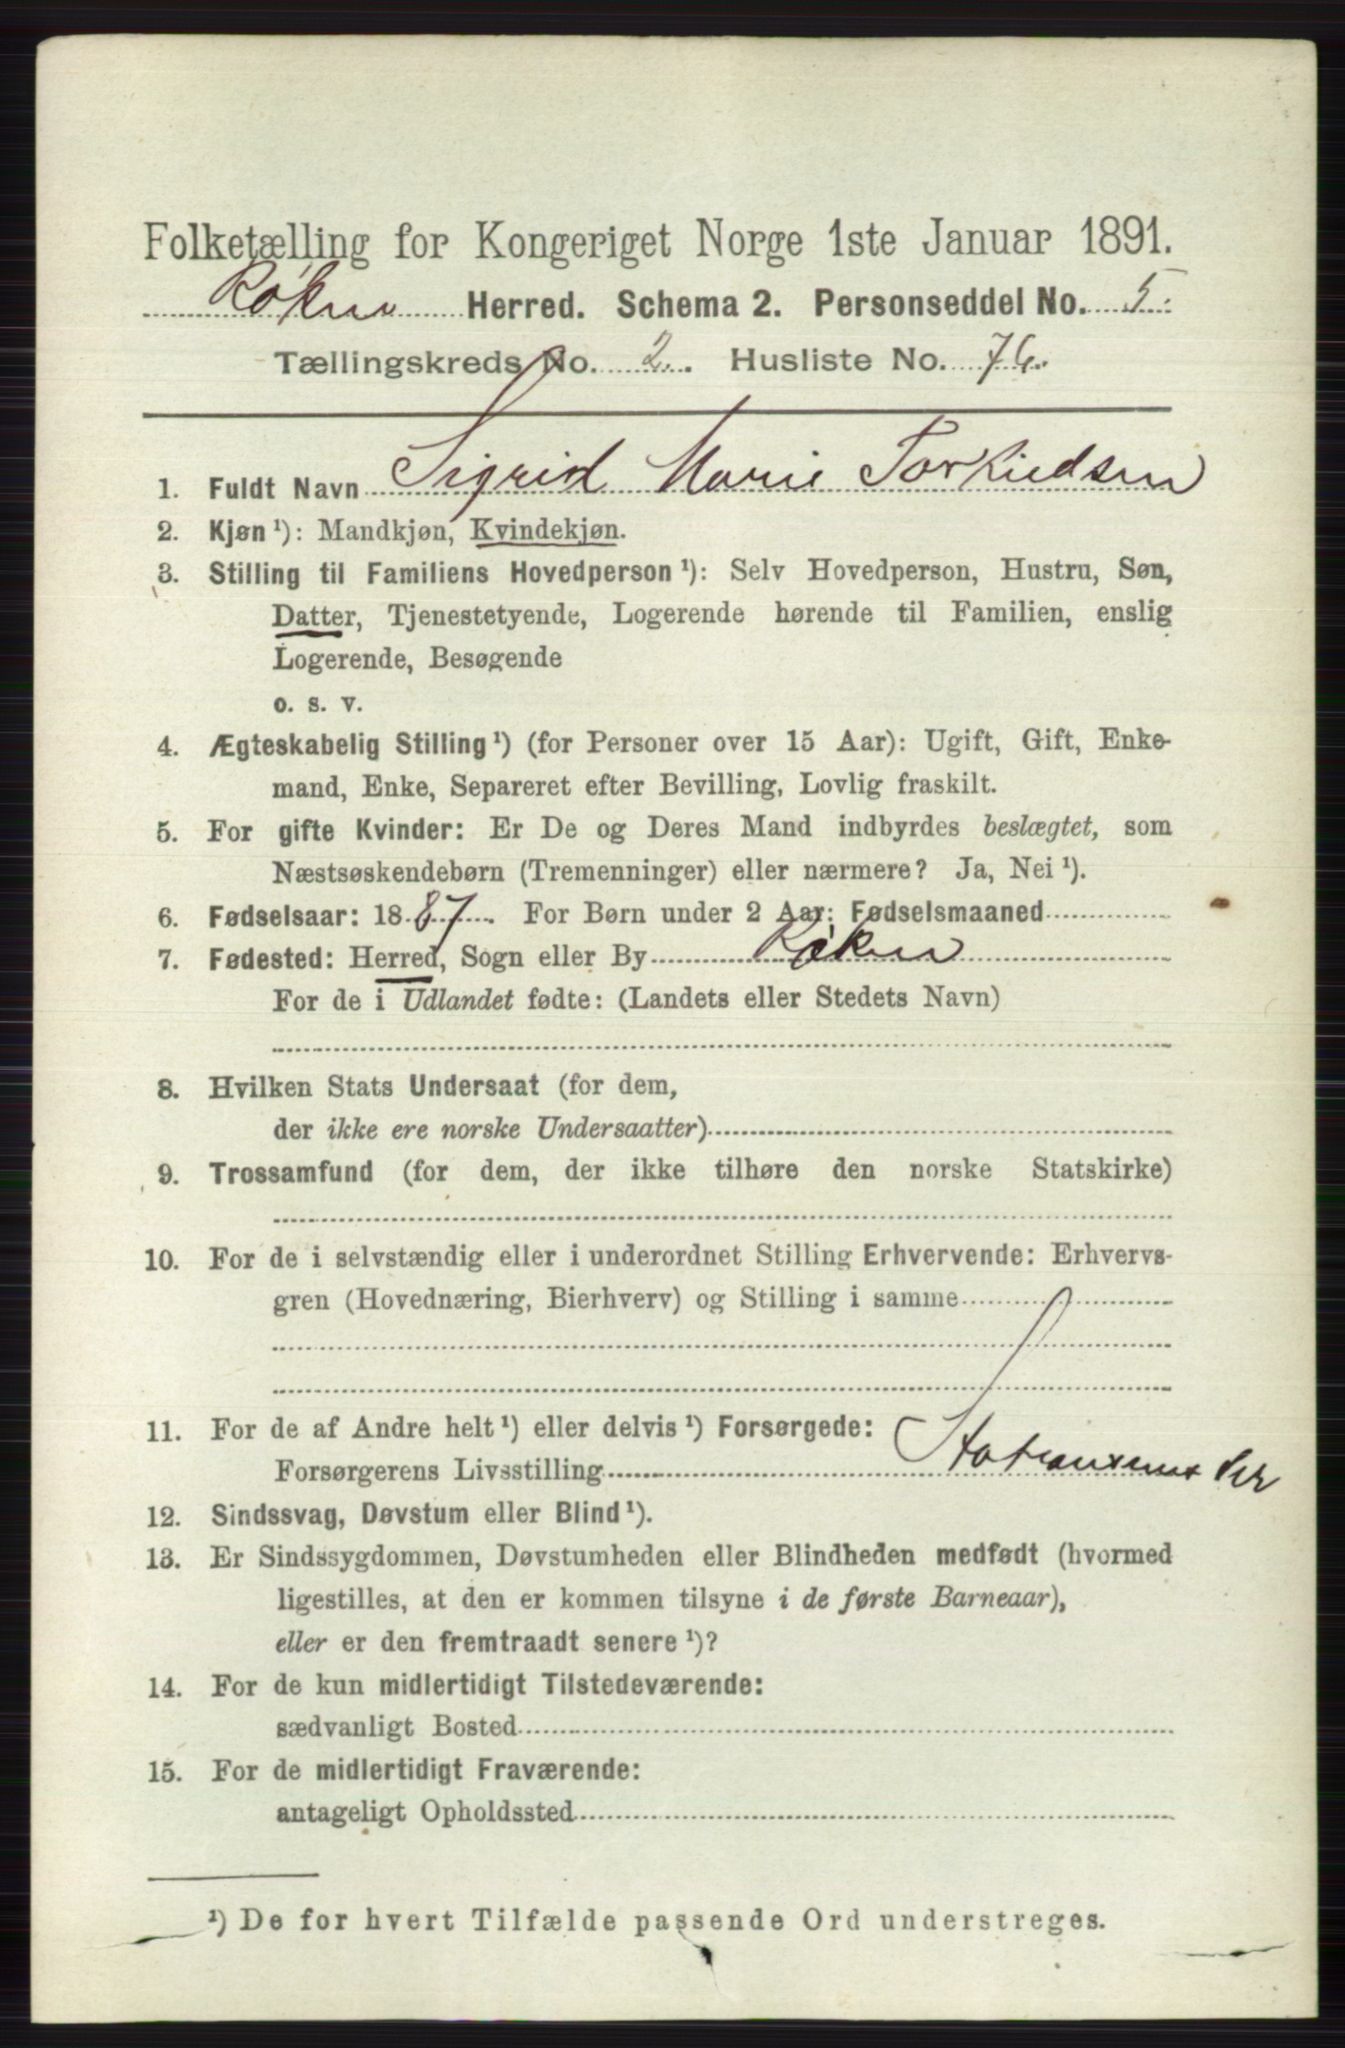 Folketælling for Kongeriget Norge 1ste Januar 1891.
Røken Herred. Schema 2. Personseddel No. 5.
Tællingskreds No. 2. Husliste No. 76.
1. Fuldt Navn Sigrid Marie Torkildsen
2. Kjøn ¹): Mandkjøn, Kvindekjøn.
3. Stilling til Familiens Hovedperson ¹): Selv Hovedperson, Hustru, Søn,
Datter, Tjenestetyende, Logerende hørende til Familien, enslig
Logerende, Besøgende
o. s. v.
4. Ægteskabelig Stilling ¹) (for Personer over 15 Aar): Ugift, Gift, Enke-
mand, Enke, Separeret efter Bevilling, Lovlig fraskilt.
5. For gifte Kvinder: Er De og Deres Mand indbyrdes beslægtet, som
Næstsøskendebørn (Tremenninger) eller nærmere? Ja, Nei ¹).
6. Fødselsaar: 1887. For Børn under 2 Aar: Fødselsmaaned
7. Fødested: Herred, Sogn eller By Røken
For de i Udlandet fødte: (Landets eller Stedets Navn)
8. Hvilken Stats Undersaat (for dem,
der ikke ere norske Undersaatter)
9. Trossamfund (for dem, der ikke tilhøre den norske Statskirke)
10. For de i selvstændig eller i underordnet Stilling Erhvervende: Erhvervs-
gren (Hovednæring, Bierhverv) og Stilling i samme
11. For de af Andre helt ¹) eller delvis ¹) Forsørgede:
Forsørgerens Livsstilling
12. Sindssvag, Døvstum eller Blind ¹).
13. Er Sindssygdommen, Døvstumheden eller Blindheden medfødt (hvormed
ligestilles, at den er kommen tilsyne i de første Barneaar),
eller er den fremtraadt senere ¹)?
14. For de kun midlertidigt Tilstedeværende:
sædvanligt Bosted
15. For de midlertidigt Fraværende:
antageligt Opholdssted
¹) De for hvert Tilfælde passende Ord understreges.